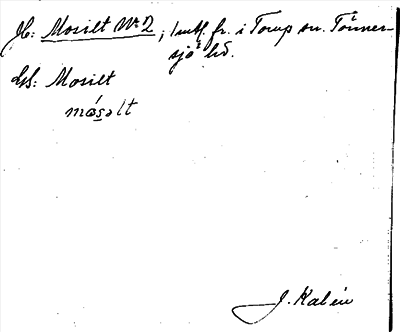 Jb: Mosilt No 2, 1 mtl. fr. i Torup sn. Tönner-
sjö hd.
Us: Mosilt
mósəlt
J. Kalén